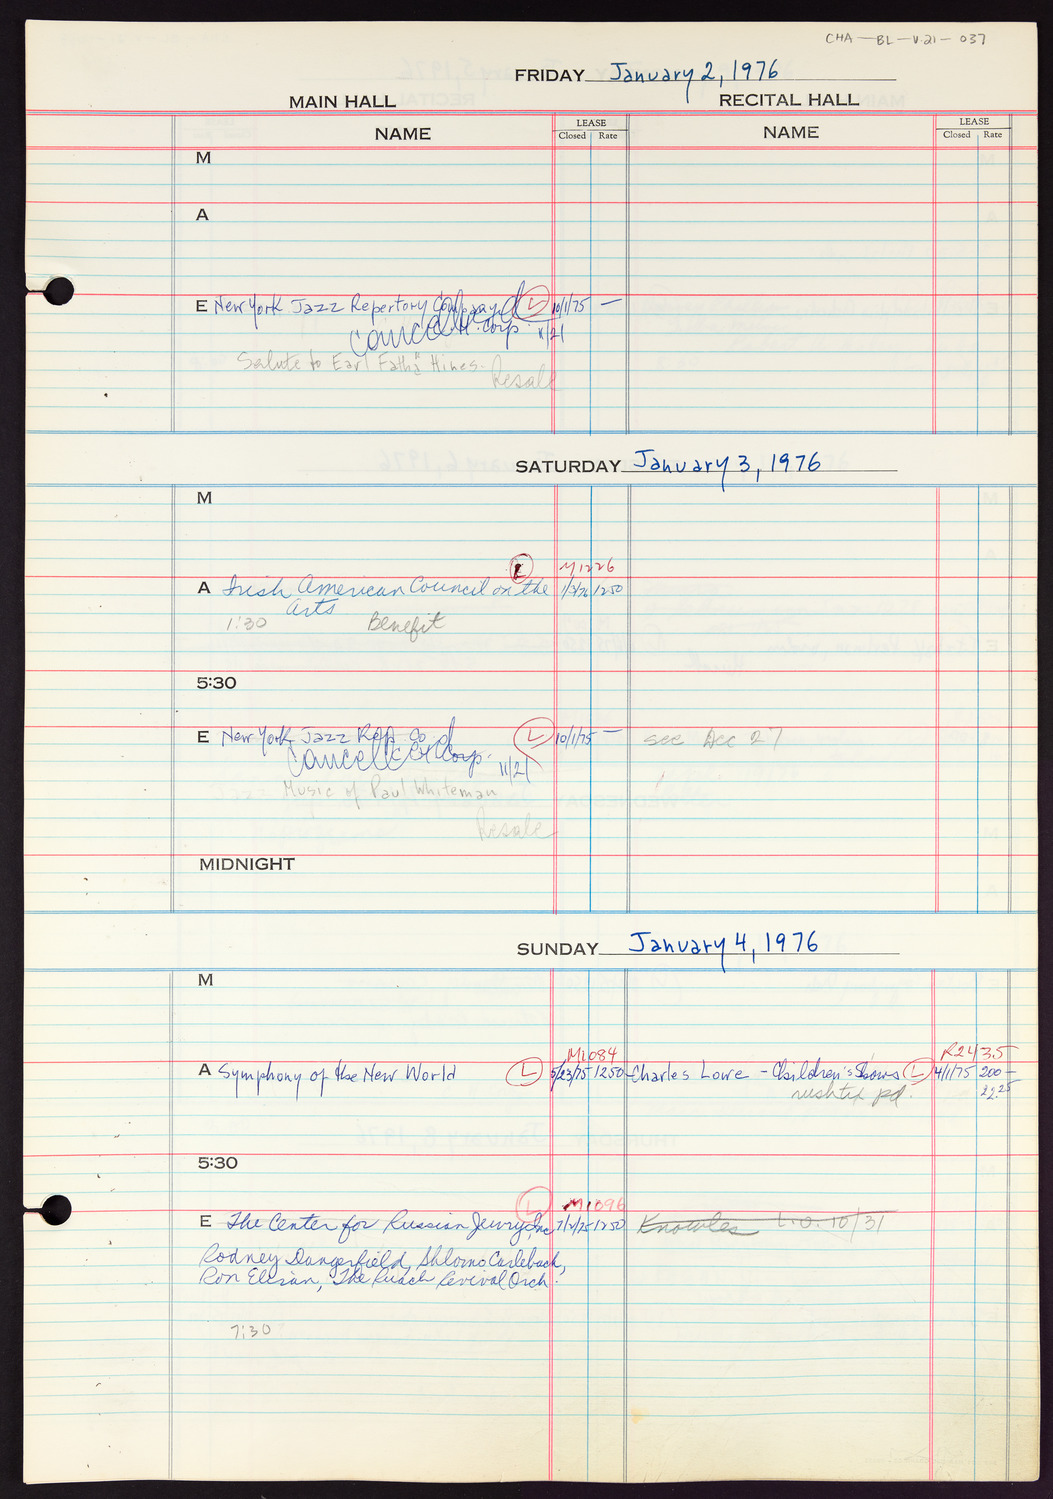 CHA-BL-V.21-037
FRIDAY January 2, 1976
MAIN HALL RECITAL HALL
NAME LEASE Closed Rate NAME LEASE Closed Rate
M
A
E New York Jazz Repertory Company L 10/1/75 —
cancelled Corp. 11/21
Salute to Earl "Fatha" Hines. Resale
SATURDAY January 3, 1976
M
L M1226
A Irish American Council on the 1250
Arts
1:30 Benefit
5:30
E New York Jazz Rep. Co L 10/1/75 — see Dec 27
cancelled Corp. 11/21
Music of Paul Whiteman
Resale
MIDNIGHT
SUNDAY January 4, 1976
M
M1084 R2435
A Symphony of the New World L 5/23/75 1250 Charles Lowe - Children's Shows L 4/1/75 200—
pd. 22.25
5:30
L M1096
E The Center for Russian Jewry, Inc 7/2/75 1250 Knowles L.O. 10/31
Rodney Dangerfield, Shlomo Carlebach,
Ron Eliran, The Ruach Revival Orch.
7:30